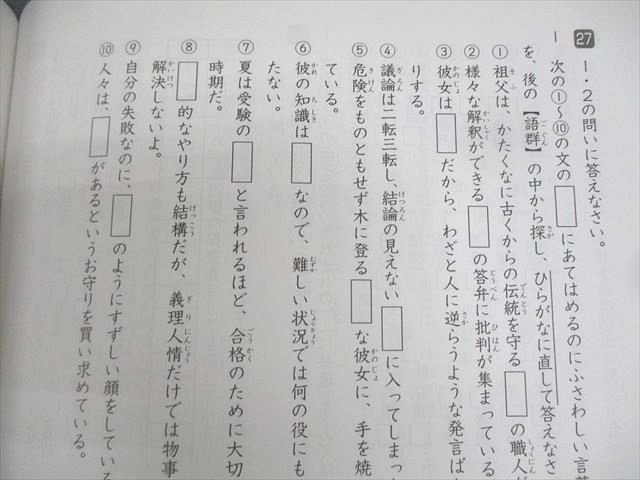 27 1・2の問いに答えなさい。
1 次の①〜⑩の文の□にあてはめるのにふさわしい言葉
を、後の【語群】の中から探し、ひらがなに直して答えなさ
① 祖父は、かたくなに古くからの伝統を守る□の職人
② 様々な解釈ができる□の答弁に批判が集まっている
③ 彼女は□だから、わざと人に逆らうような発言ば
りする。
④ 議論は二転三転し、結論の見えない□に入ってしまっ
ている。
⑤ 危険をものともせず木に登る□な彼女に、手を焼
⑥ 彼の知識は□なので、難しい状況では何の役にも
たない。
⑦ 夏は受験の□と言われるほど、合格のために大切
時期だ。
⑧ □的なやり方も結構だが、義理人情だけでは物事
解決しないよ。
⑨ 自分の失敗なのに、□のようにすずしい顔をしている
⑩ 人々は、□があるというお守りを買い求めている。